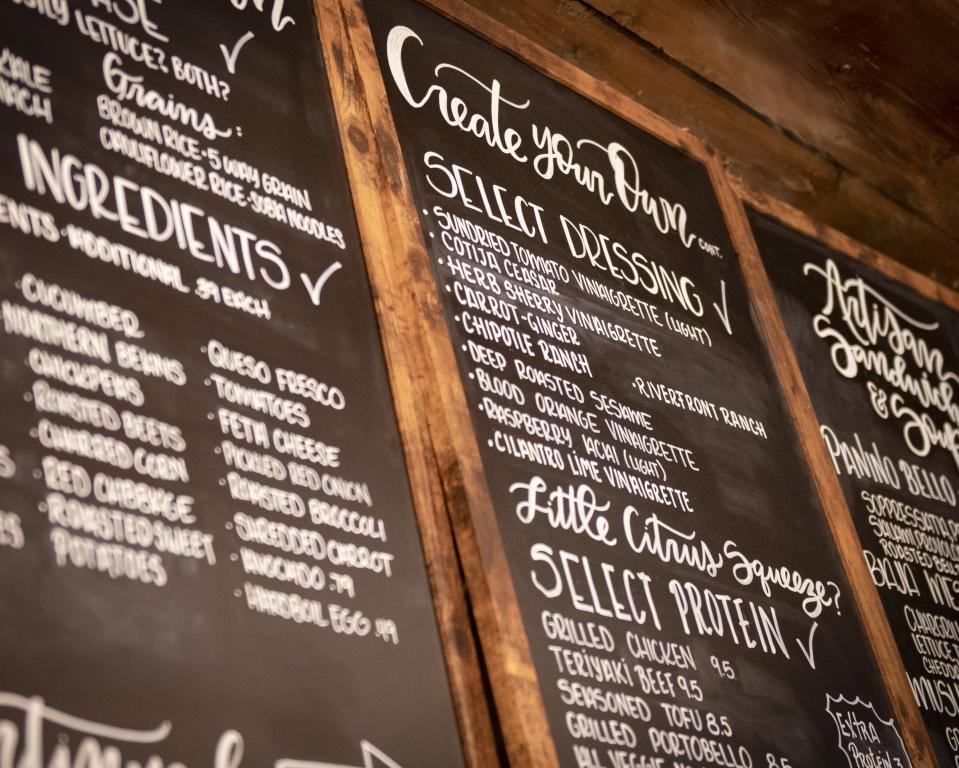 LETTUCE? BOTH? ✓
Grains:
BROWN RICE · 5 WAY GRAIN
CAULIFLOWER RICE · SOBA NOODLES
INGREDIENTS ✓
ADDITIONAL .39 EACH
· CUCUMBER
NORTHERN BEANS
· CHICKPEAS
· ROASTED BEETS
· CHARRED CORN
· RED CABBAGE
· ROASTED SWEET
POTATOES
· QUESO FRESCO
· TOMATOES
· FETA CHEESE
· PICKLED RED ONION
· ROASTED BROCCOLI
· SHREDDED CARROT
· AVOCADO .79
· HARDBOIL EGG .49
Create your Own CONT.
SELECT DRESSING ✓
· SUNDRIED TOMATO VINAIGRETTE (LIGHT)
· COTIJA CEASAR
· HERB SHERRY VINAIGRETTE
· CARROT-GINGER
· CHIPOTLE RANCH
· RIVERFRONT RANCH
· DEEP ROASTED SESAME
· BLOOD ORANGE VINAIGRETTE
· RASPBERRY ACAI (LIGHT)
· CILANTRO LIME VINAIGRETTE
Little Citrus Squeeze?
SELECT PROTEIN ✓
GRILLED CHICKEN 9.5
TERIYAKI BEEF 9.5
SEASONED TOFU 8.5
GRILLED PORTOBELLO 8.5
ALL VEGGIE
EXTRA
PROTEIN 3
Artisan
Sandwich
& Soup
PANINO BELLO